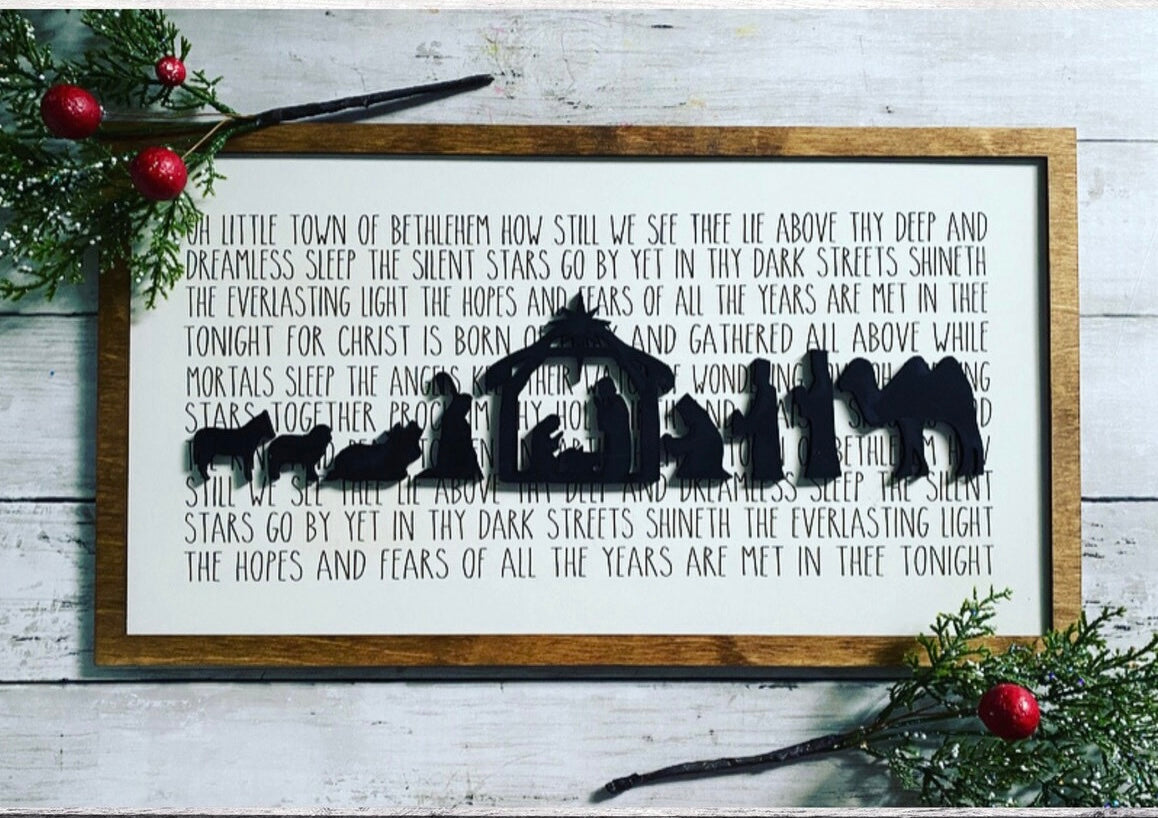 OH LITTLE TOWN OF BETHLEHEM HOW STILL WE SEE THEE LIE ABOVE THY DEEP AND
DREAMLESS SLEEP THE SILENT STARS GO BY YET IN THY DARK STREETS SHINETH
THE EVERLASTING LIGHT THE HOPES AND FEARS OF ALL THE YEARS ARE MET IN THEE
TONIGHT FOR CHRIST IS BORN AND GATHERED ALL ABOVE WHILE
MORTALS SLEEP THE ANGELS THEIR
STARS TOGETHER
BETHLEHEM
STILL WE SEE THEE LIE ABOVE THY DEEP AND DREAMLESS SLEEP THE SILENT
STARS GO BY YET IN THY DARK STREETS SHINETH THE EVERLASTING LIGHT
THE HOPES AND FEARS OF ALL THE YEARS ARE MET IN THEE TONIGHT